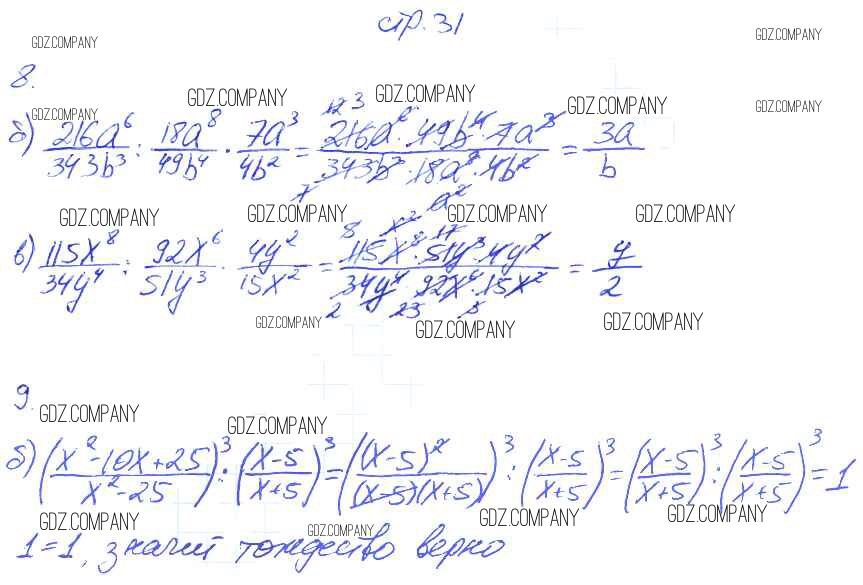 стр. 31
GDZ.COMPANY GDZ.COMPANY
8.
GDZ.COMPANY GDZ.COMPANY GDZ.COMPANY GDZ.COMPANY GDZ.COMPANY
б) 216a⁶/343b³ : 18a⁸/49b⁴ · 7a³/4b² = 216a⁶ · 49b⁴ · 7a³ / 343b³ · 18a⁸ · 4b² = 3a/b
GDZ.COMPANY GDZ.COMPANY GDZ.COMPANY GDZ.COMPANY
в) 115x⁸/34y⁴ : 92x⁶/51y³ · 4y²/15x² = 115x⁸ · 51y³ · 4y² / 34y⁴ · 92x⁶ · 15x² = y/2
GDZ.COMPANY GDZ.COMPANY GDZ.COMPANY
9.
GDZ.COMPANY GDZ.COMPANY
б) (x²-10x+25/x²-25)³ : (x-5/x+5)³ = ((x-5)²/(x-5)(x+5))³ : (x-5/x+5)³ = (x-5/x+5)³ : (x-5/x+5)³ = 1
GDZ.COMPANY GDZ.COMPANY GDZ.COMPANY GDZ.COMPANY
1=1, значит тождество верно